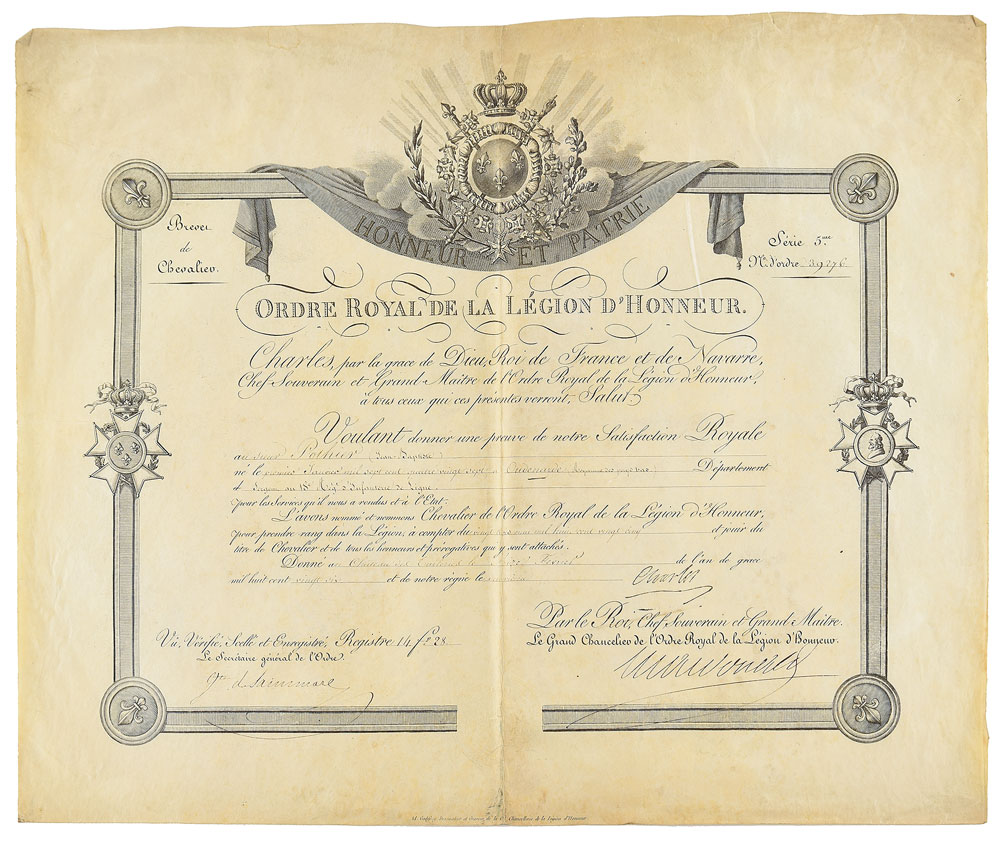 HONNEUR ET PATRIE
Brevet
de
Chevalier.
Série 5.me
No. d'ordre 39276
ORDRE ROYAL DE LA LÉGION D'HONNEUR.
Charles, par la grace de Dieu, Roi de France et de Navarre,
Chef Souverain et Grand Maître de l'Ordre Royal de la Légion d'Honneur,
à tous ceux qui ces présentes verront, Salut.
Voulant donner une preuve de notre Satisfaction Royale
au Sieur Pothier (Jean Baptiste)
né le premier Janvier mil sept cent quatre vingt sept à Oudenarde (Royaume des pays bas) Département
d Sergent au 18e Régt d'Infanterie de Ligne
pour les Services qu'il nous a rendus et à l'Etat.
L'avons nommé et nommons Chevalier de l'Ordre Royal de la Légion d'Honneur,
pour prendre rang dans la Légion, à compter du vingt trois mai mil huit cent vingt cinq et jouir du
titre de Chevalier et de tous les honneurs et prérogatives qui y sont attachés.
Donné au Château des Tuileries le février de l'an de grace
mil huit cent vingt six et de notre règne le
Charles
Par le Roi, Chef Souverain et Grand Maître.
Le Grand Chancelier de l'Ordre Royal de la Légion d'Honneur.
Vu, Vérifié, Scellé et Enregistré, Registre 14, fo 28
Le Secrétaire général de l'Ordre.
de la Gde Chancellerie de la Légion d'Honneur